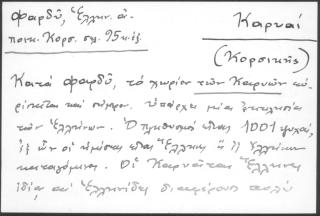 Φαρδύ, Ἑλλην. ἀ-
ποικ. Κορσ. σελ. 95 κ.ἑξ.
Καρυαί
(Κορσικῆς)
Κατά Φαρδύ, τό χωρίον τῶν Καρυῶν εὑ-
ρίσκεται καί σήμερον. ὑπάρχει μία ἐκκλησία
τῶν Ἑλλήνων. Ὁ πληθυσμός εἶναι 1001 ψυχαί,
ἐξ ὧν οἱ ἡμίσεις εἶναι Ἕλληνες ἤ ἐξ Ἑλλήνων
καταγόμενοι. Οἱ Καρυᾶται Ἕλληνες
ἰδίᾳ αἱ Ἑλληνίδες διαφέρουσι πολύ